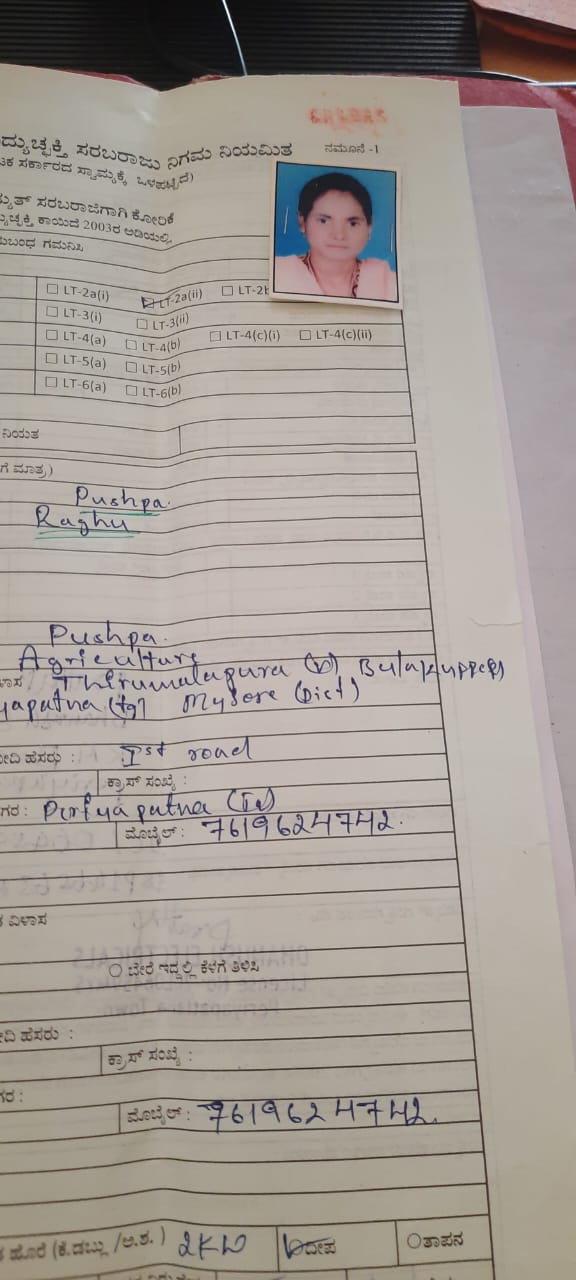 ದ್ಯುಚ್ಛಕ್ತಿ ಸರಬರಾಜು ನಿಗಮ ನಿಯಮಿತ ನಮೂನೆ -1
ಟಕ ಸರ್ಕಾರದ ಸ್ವಾಮ್ಯಕ್ಕೆ ಒಳಪಟ್ಟಿದೆ)
ಯುತ್ ಸರಬರಾಜಿಗಾಗಿ ಕೋರಿಕೆ
ಯುಚ್ಛಕ್ತಿ ಕಾಯಿದೆ 2003ರ ಅಡಿಯಲ್ಲಿ
ನುಬಂಧ ಗಮನಿಸಿ
☐ LT-2a(i) ☑ LT-2a(ii) ☐ LT-2b
☐ LT-3(i) ☐ LT-3(ii)
☐ LT-4(a) ☐ LT-4(b) ☐ LT-4(c)(i) ☐ LT-4(c)(ii)
☐ LT-5(a) ☐ LT-5(b)
☐ LT-6(a) ☐ LT-6(b)
ನಿಯತ
ಗೆ ಮಾತ್ರ)
Pushpa.
Raghu
Pushpa.
Agriculture
ಳಾಸ Thirumalapura (v)
yapatna (tq) Mysore (Dict)
ೀದಿ ಹೆಸರು : Ist road
ಕ್ರಾಸ್ ಸಂಖ್ಯೆ :
ಗರ : Piriyapatna
ಮೊಬೈಲ್ : 7619624742.
ವಿಳಾಸ
○ ಬೇರೆ ಇದ್ದಲ್ಲಿ ಕೆಳಗೆ ತಿಳಿಸಿ
ೀದಿ ಹೆಸರು :
ಕ್ರಾಸ್ ಸಂಖ್ಯೆ :
ಗರ :
ಮೊಬೈಲ್ : 7619624742.
ಹೊರೆ (ಕೆ.ಡಬ್ಲ್ಯು /ಅ.ಶ. ) 2KW ದೀಪ ○ತಾಪನ